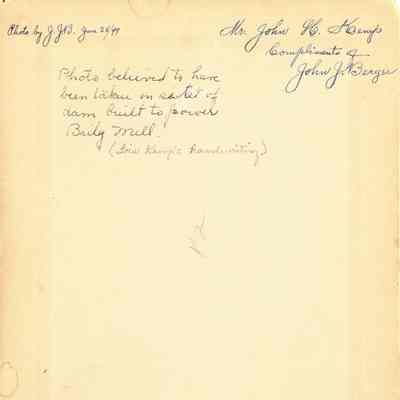 Photo by J.J.B. Jan 26/47
Mr. John H. Kemp
Compliments of
John J. Berger
Photo believed to have
been taken on site of
dam built to power
Mill.
(Lois Kemp's handwriting)